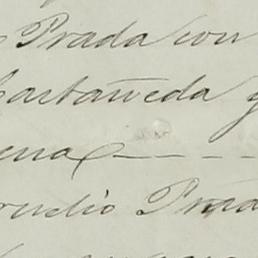 Prada con
Castañeda y
ena
rudio Prad